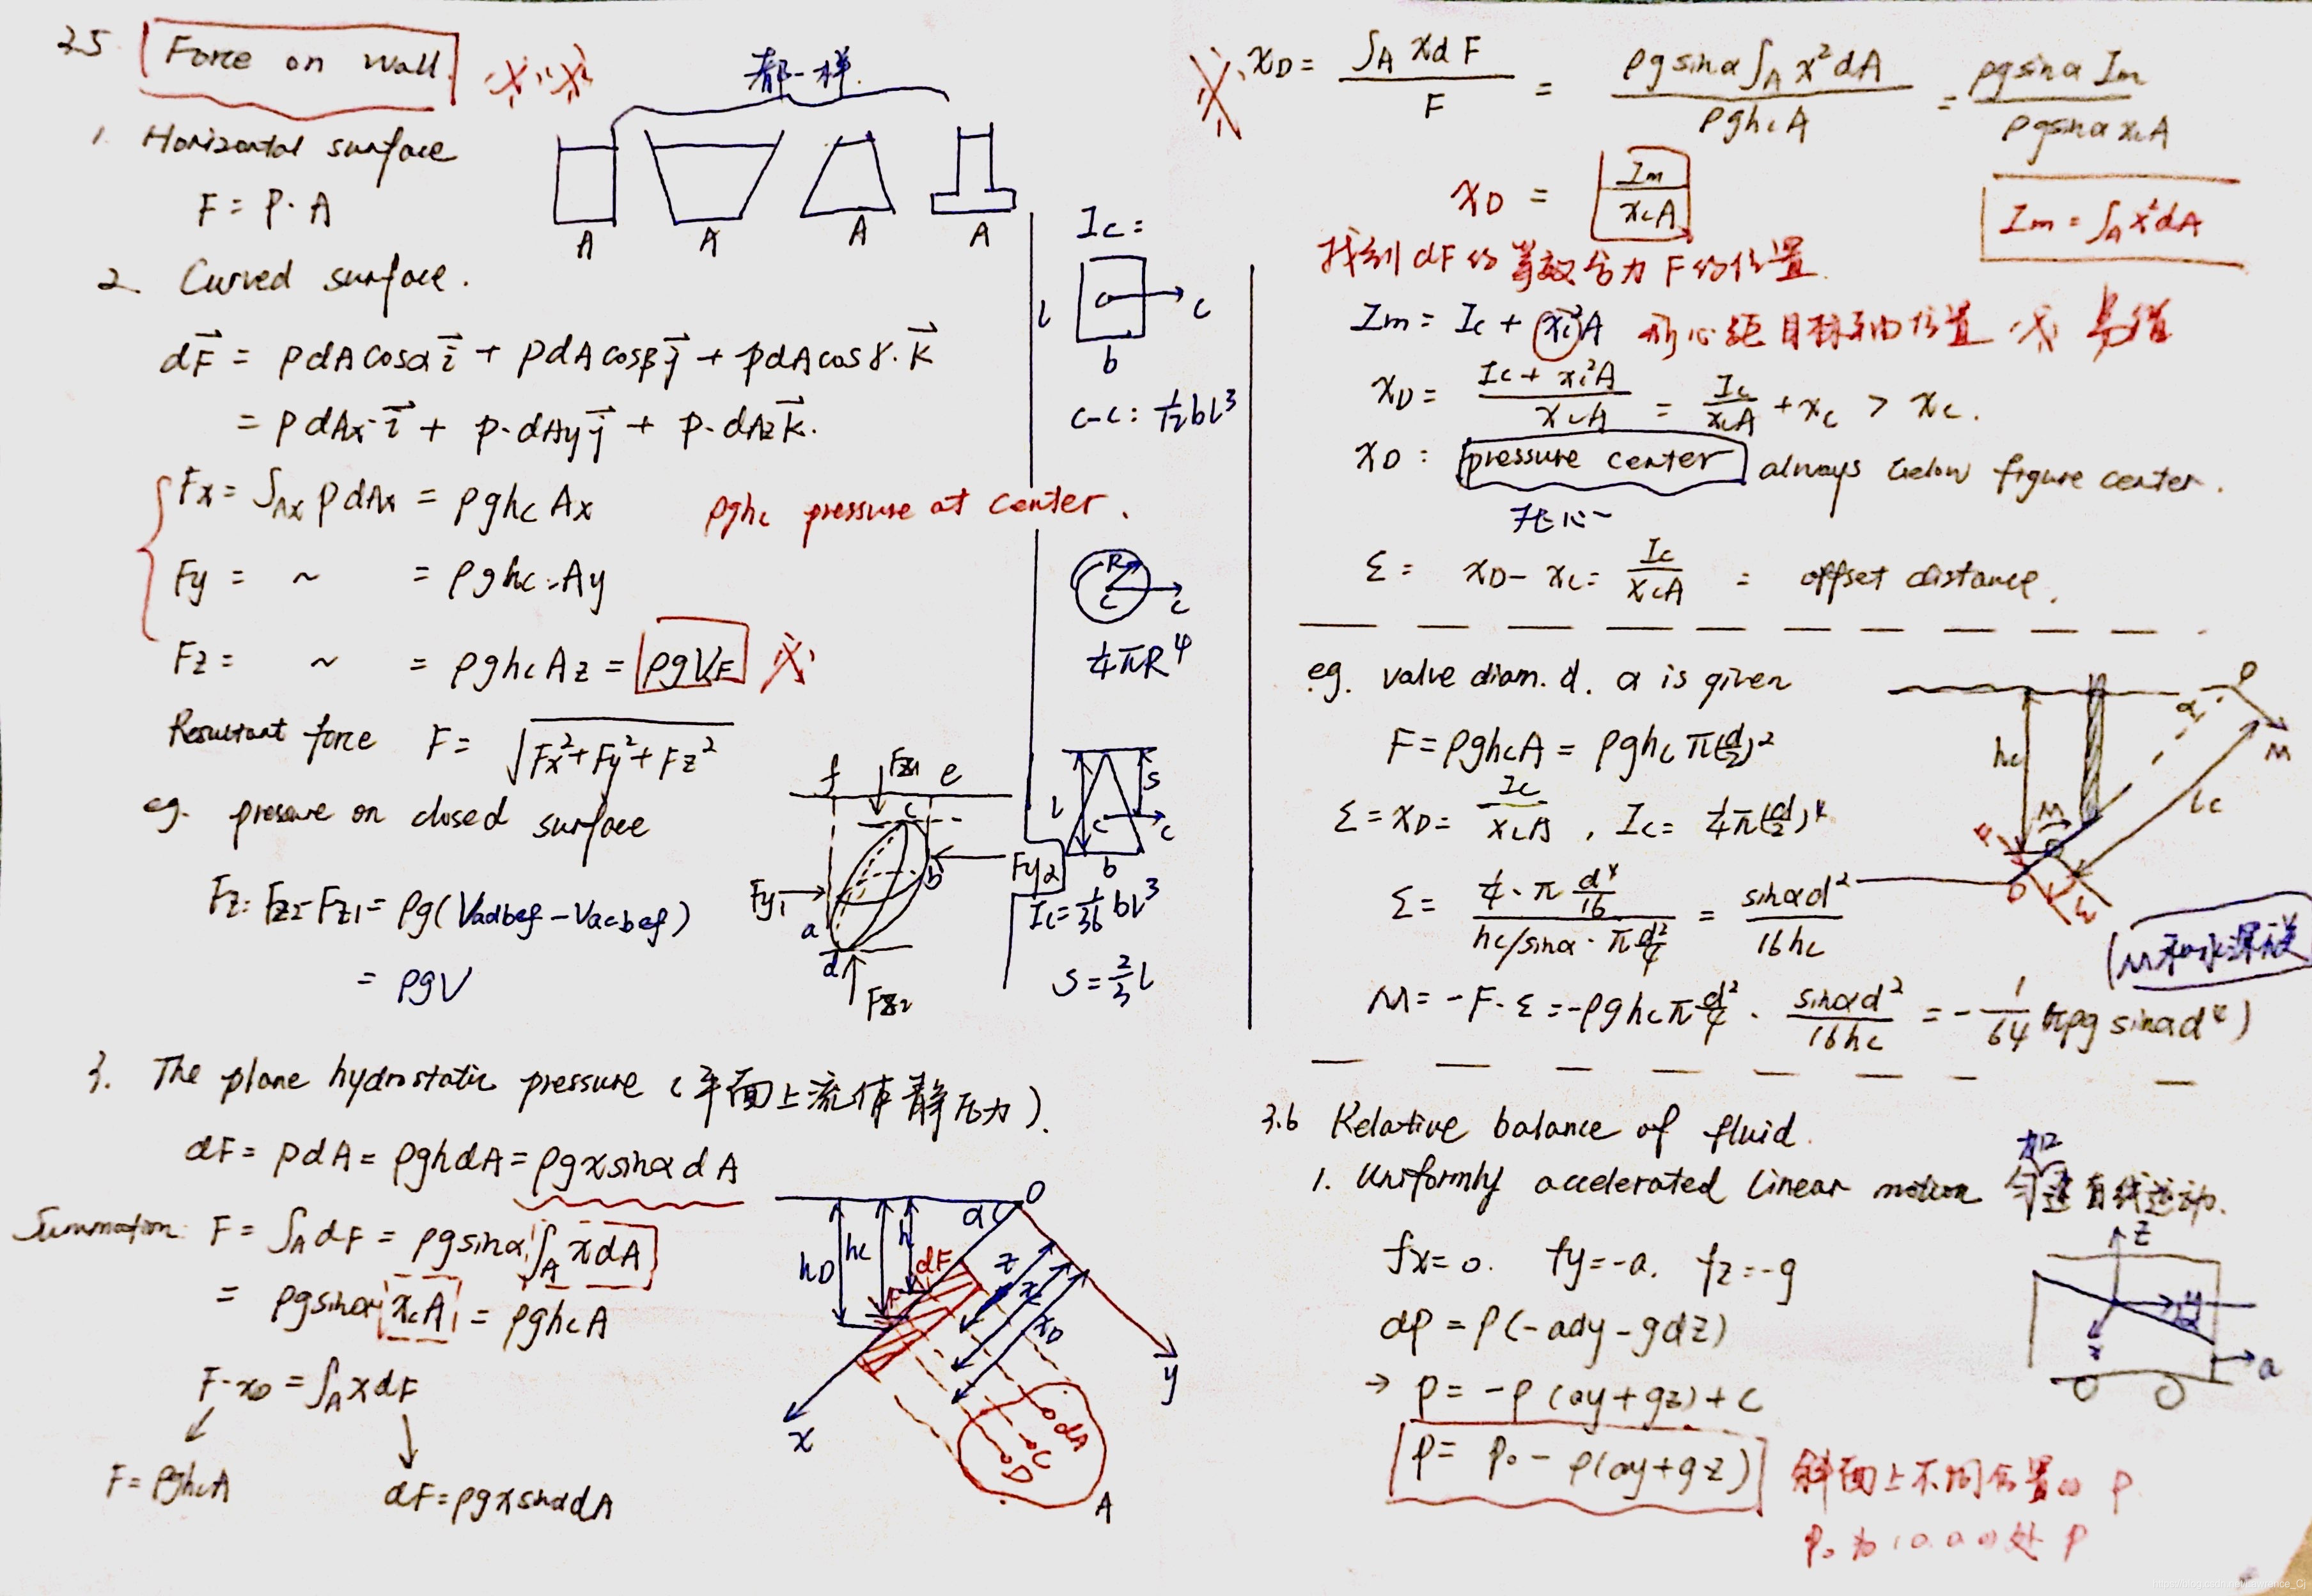 3.5 Force on wall
都一样
1. Horizontal surface
F = P · A
A A A A
2. Curved surface.
dF = pdAcosα i + pdAcosβ j + pdAcosγ · k
= p dAx · i + p · dAy j + p · dAz k.
Fx = ∫Ax p dAx = ρghc Ax
ρghc pressure at center.
Fy = ~ = ρghc · Ay
Fz = ~ = ρghcAz = ρgVF
Resultant force F = √Fx²+Fy²+Fz²
eg. pressure on closed surface
Fz = Fz2 - Fz1 = ρg(Vadbef - Vacbef)
= ρgV
f Fz1 e
c
Fy1 b Fy2
a
d
Fz2
Ic =
l c c
b
c-c: 1/12 bl³
R
c c
1/4 πR⁴
l s
c c
b
Ic = 1/36 bl³
S = 2/3 l
3. The plane hydrostatic pressure (平面上流体静压力).
dF = pdA = ρghdA = ρgxsinαdA
Summation: F = ∫A dF = ρgsinα ∫A xdA
= ρgsinα xcA = ρghcA
F · xD = ∫A xdF
F = ρghcA dF = ρgxsinαdA
O
α
hD hc h dF
F
x xc xD
x y
dA
C
D
A
xD = ∫A xdF / F = ρgsinα∫A x²dA / ρghcA = ρgsinα Im / ρgsinα xcA
xD = Im / xcA
Im = ∫A x²dA
找到 dF 的等效合力 F 的位置.
Im = Ic + xc²A 形心距目标轴位置 易错
xD = Ic + xc²A / xcA = Ic / xcA + xc > xc.
xD: pressure center always below figure center.
形心
ε = xD - xc = Ic / xcA = offset distance.
eg. valve diam. d. α is given
F = ρghcA = ρghc π(d/2)²
ε = xD = Ic / xcA , Ic = 1/4 π(d/2)⁴
ε = 1/4 · π d⁴/16 / hc/sinα · π d²/4 = sinαd² / 16hc
M = -F · ε = -ρghcπ d²/4 · sinαd² / 16hc = - 1/64 πρg sinαd⁴)
O
α
hc
M
lc
M
3.6 Relative balance of fluid.
1. Uniformly accelerated linear motion 匀加速直线运动.
fx = 0. fy = -a. fz = -g
dp = ρ(-ady - gdz)
→ p = -ρ(ay + gz) + c
p = p₀ - ρ(ay + gz)
z
y
α
x
a
斜面上不同位置的 p
p₀ 为 (0.0.0) 处 p